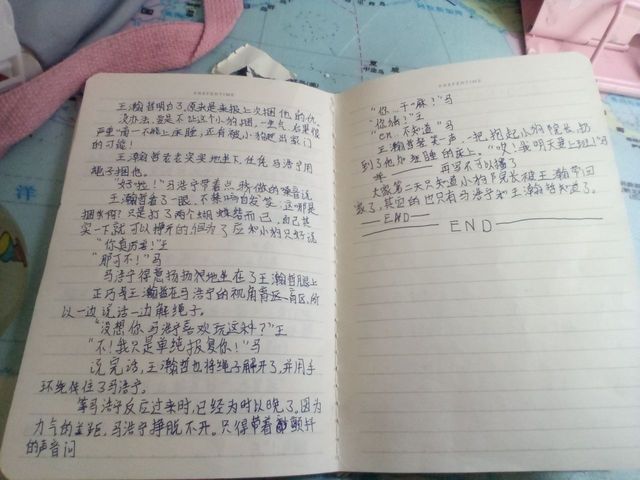 PREFERTIME
王瀚哲明白了,原来是来报上次捆他的仇
没办法,要是不让这个小狗捆,一生气,后果很
严重,南一不能上床睡,还有被小狗赶出家门
的可能!
王瀚哲老老实实地坐下,任凭马浩宁用
绳子捆他。
"好啦!"马浩宁带着点我傲的嗓音说
王瀚哲看了一眼,不禁嗬的发笑,这哪是
捆我啊?只是打了两个蝴蝶结而已,自己其
实一下就可以挣开的,但为了应和小狗只好说
"你真厉害!"王
"那可不!"马
马浩宁得意扬扬便地坐在了王瀚哲腿上
正巧是王瀚哲在马浩宁的视角盲区,所
以一边说话一边解绳子。
"没想你马浩宁喜欢玩这种?"王
"不!我只是单纯报复你!"马
说完话,王瀚哲也将绳子解开了,并用手
环绕住了马浩宁。
等马浩宁反应过来时,已经为时以晚了。因为
力气的差距,马浩宁挣脱不开。只得带着颤抖
的声音问
PREFERTIME
"你…干嘛!"马
"你猜!"王
"en…不知道"马
王瀚哲轻笑一声,一把抱起小狗院长,扔
到了他们要睡的床上。"哎!我明天要上班!"马
再写不可以播了
大家第二天只知道小狗院长被王瀚哲带回
家了,其它的也只有马浩宁和王瀚哲知道了。
END
END
洋